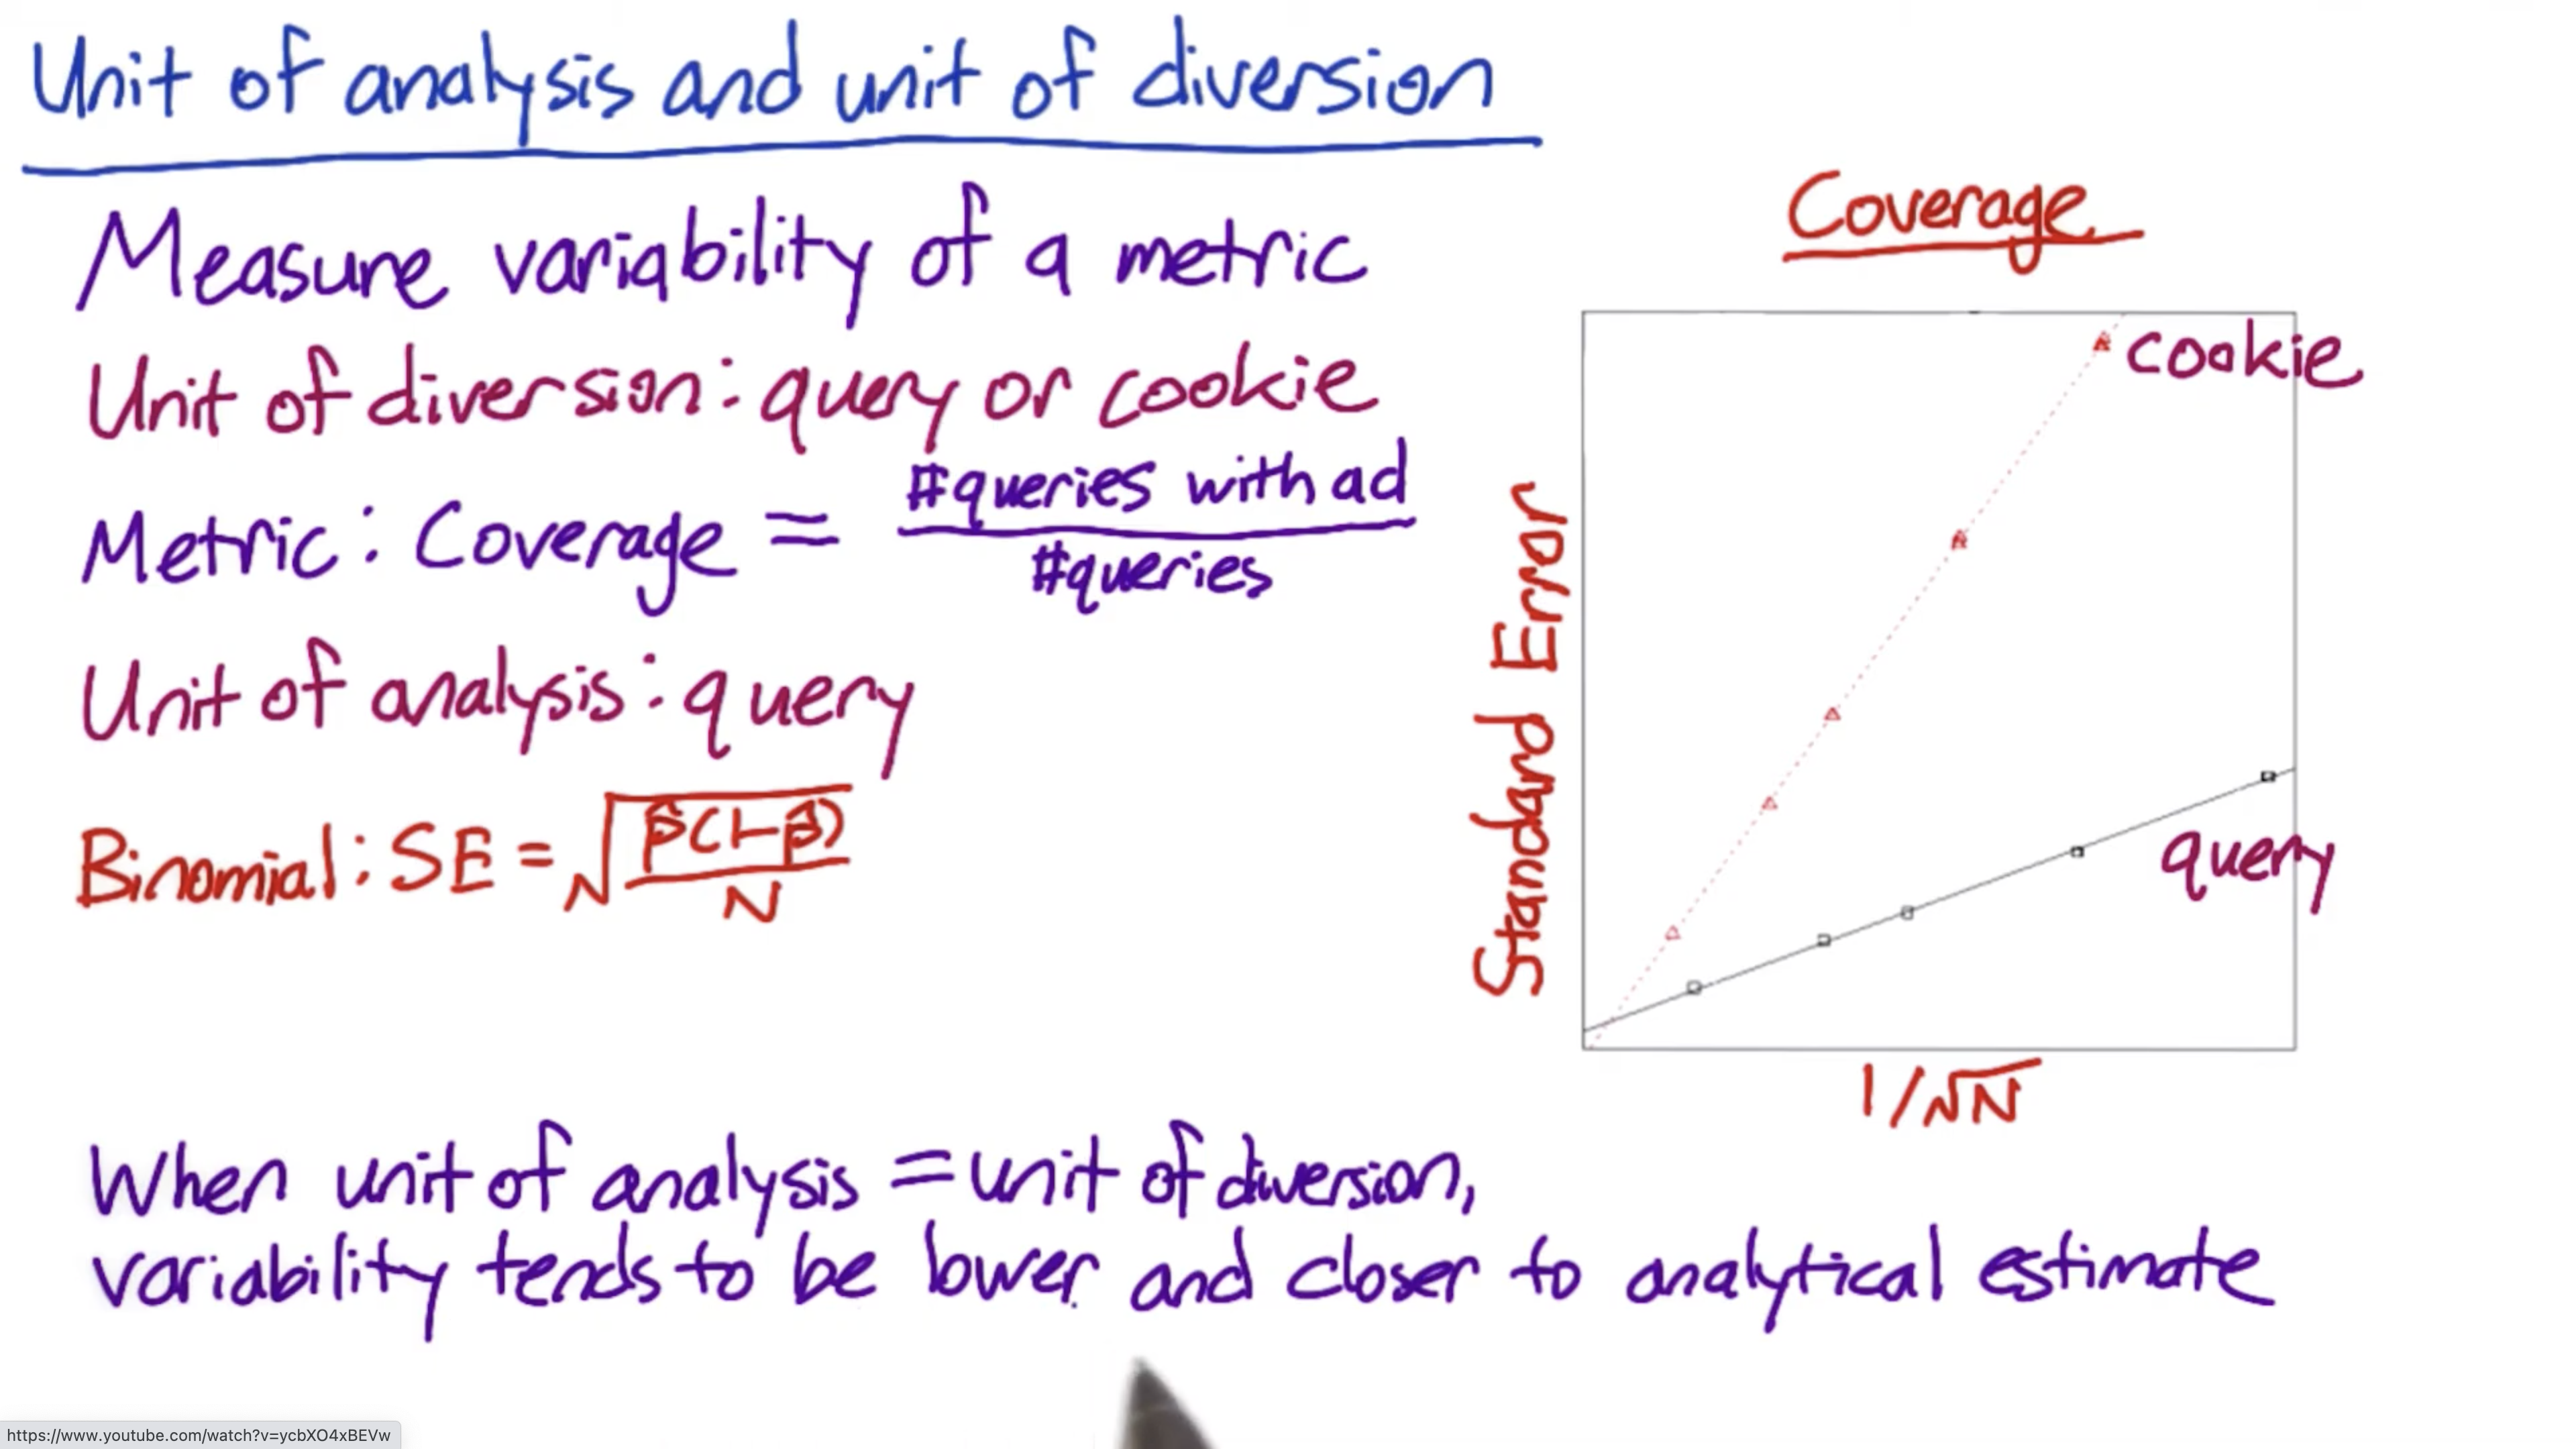 Unit of analysis and unit of diversion
Measure variability of a metric
Unit of diversion: query or cookie
Metric: Coverage = #queries with ad / #queries
Unit of analysis: query
Binomial: SE = √(p̂(1-p̂)/N)
Coverage
cookie
Standard Error
query
1/√N
When unit of analysis = unit of diversion,
variability tends to be lower and closer to analytical estimate
https://www.youtube.com/watch?v=ycbXO4xBEVw